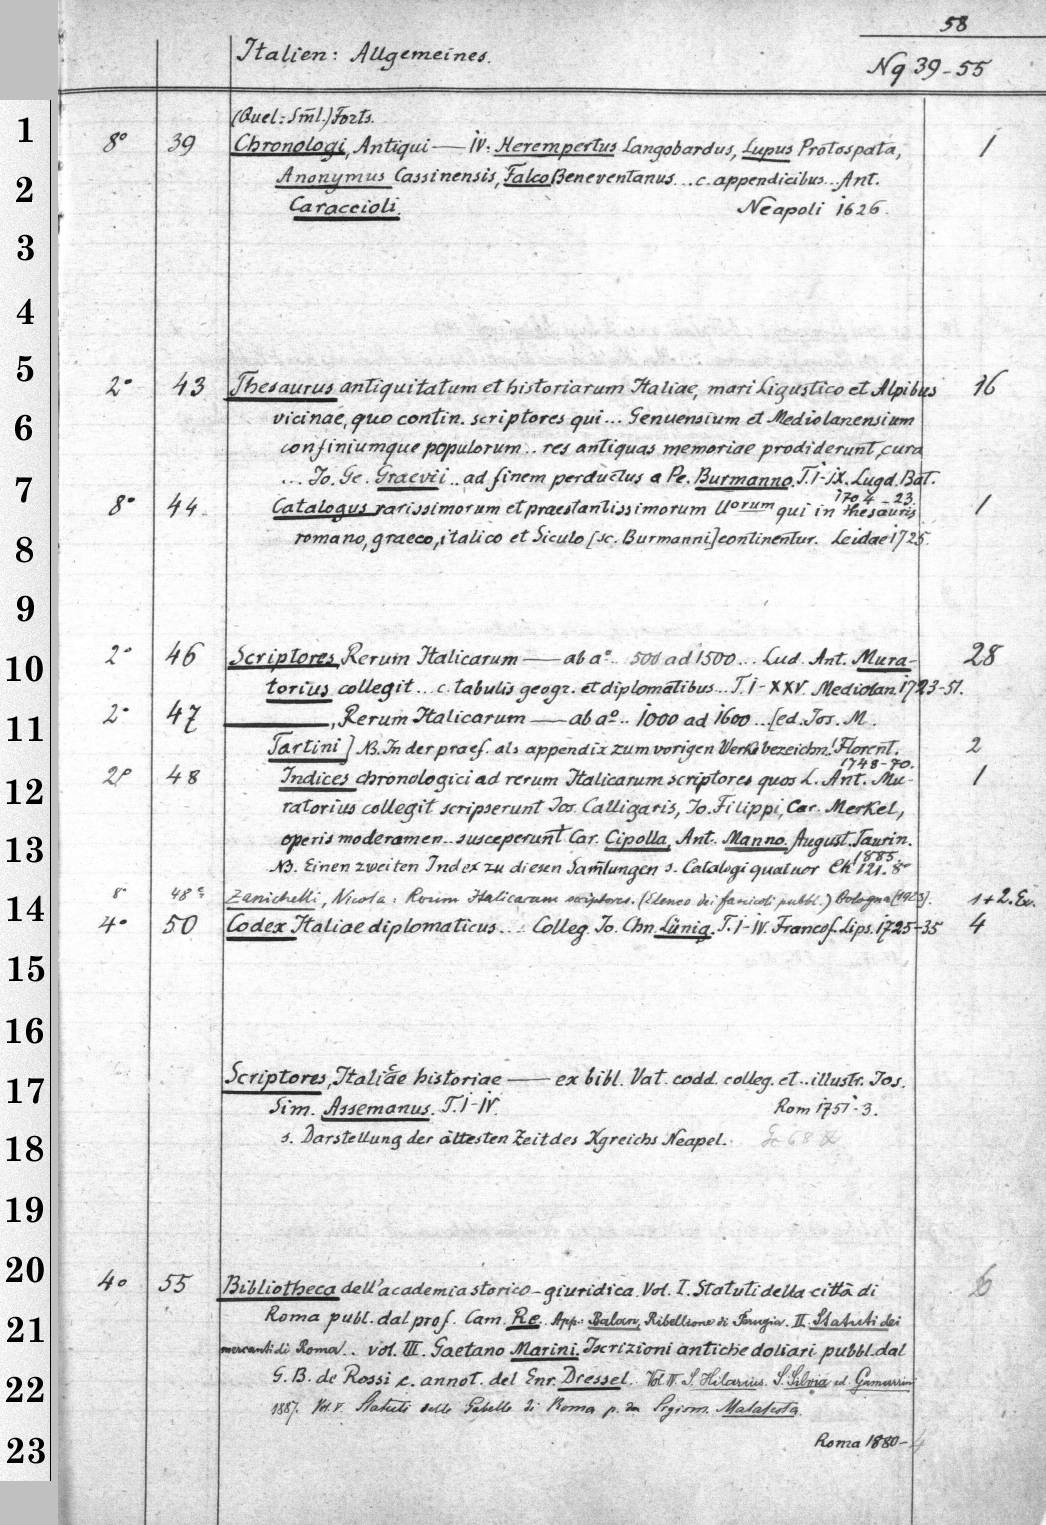 58
Italien: Allgemeines.
Nq 39-55
(Quel.-Sm̄l.) Forts.
1
8° 39 Chronologi, Antiqui — IV: Herempertus Langobardus, Lupus Protospata, 1
2
Anonymus Cassinensis, Falco Beneventanus... c. appendicibus... Ant.
Caraccioli. Neapoli 1626.
3
4
5
2° 43 Thesaurus antiquitatum et historiarum Italiae, mari Ligustico et Alpibus 16
6
vicinae, quo contin. scriptores qui... Genuensium et Mediolanensium
confiniumque populorum.. res antiquas memoriae prodiderunt, cura
7
... Jo. Ge. Graevii.. ad finem perductus a Pe. Burmanno. T. I-IX. Lugd. Bat.
1704-23.
8° 44 Catalogus rarissimorum et praestantissimorum ll orum qui in thesauris 1
8
romano, graeco, italico et Siculo [sc. Burmanni] continentur. Leidae 1725.
9
10
2° 46 Scriptores, Rerum Italicarum — ab a°.. 500 ad 1500... Lud. Ant. Mura- 28
torius collegit... c. tabulis geogr. et diplomatibus... T. I-XXV. Mediolan. 1723-51.
11
2° 47 ———, Rerum Italicarum — ab a°.. 1000 ad 1600... [ed. Jos. M.
Tartini] NB. In der praef. als appendix zum vorigen Werk bezeichn.! Florent. 2
1748-70.
12
2° 48 Indices chronologici ad rerum Italicarum scriptores quos L. Ant. Mu- 1
ratorius collegit scripserunt Jos. Calligaris, Jo. Filippi, Car. Merkel,
13
operis moderamen.. susceperunt Car. Cipolla, Ant. Manno. August. Taurin.
1885.
NB. Einen zweiten Index zu diesen Sam̄lungen s. Catalogi quatuor Ck 121. 8°
14
8° 48 c Zanichelli, Nicola: Rerum Italicarum scriptores. (Elenco dei fascicoli pubbl.) Bologna (1923). 1+2. Ex.
4° 50 Codex Italiae diplomaticus... Colleg. Jo. Chn. Lünig. T. I-IV. Francof. Lips. 1725-35 4
15
16
17
Scriptores, Italicae historiae — ex bibl. Vat. codd. colleg. et.. illustr. Jos.
Sim. Assemanus. T. I-IV. Rom 1751-3.
18
s. Darstellung der ältesten Zeit des Kgreichs Neapel.
19
20
4° 55 Bibliotheca dell'academia storico-giuridica. Vol. I. Statuti della città di 6
21
Roma publ. dal prof. Cam. Re. App.: Balan, Ribellione di Perugia. II. Statuti dei
mercanti di Roma.. vol. III. Gaetano Marini. Iscrizioni antiche doliari pubbl. dal
22
G. B. de Rossi c. annot. del Enr. Dressel. Vol. IV. S. Hilarius. S. Silvia ed. Gamurrini
1887. Vol. V. Statuti delle Gabelle di Roma p. da Sigism. Malatesta.
23
Roma 1880-